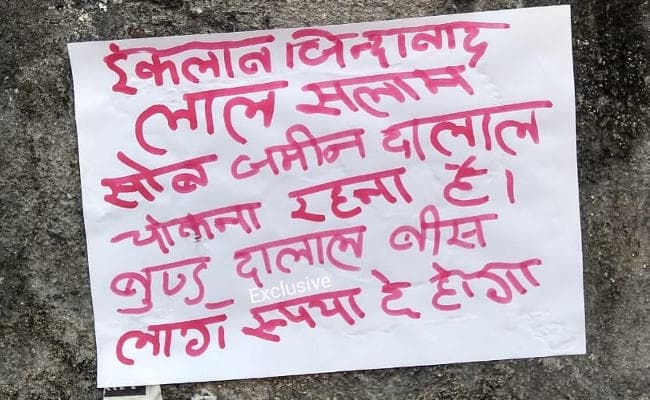 इंकलाब जिन्दाबाद
लाल सलाम
सोब जमीन दालाल
चोकना रहना है।
दालाल बीस
Exclusive
लाग रूपया दे होगा